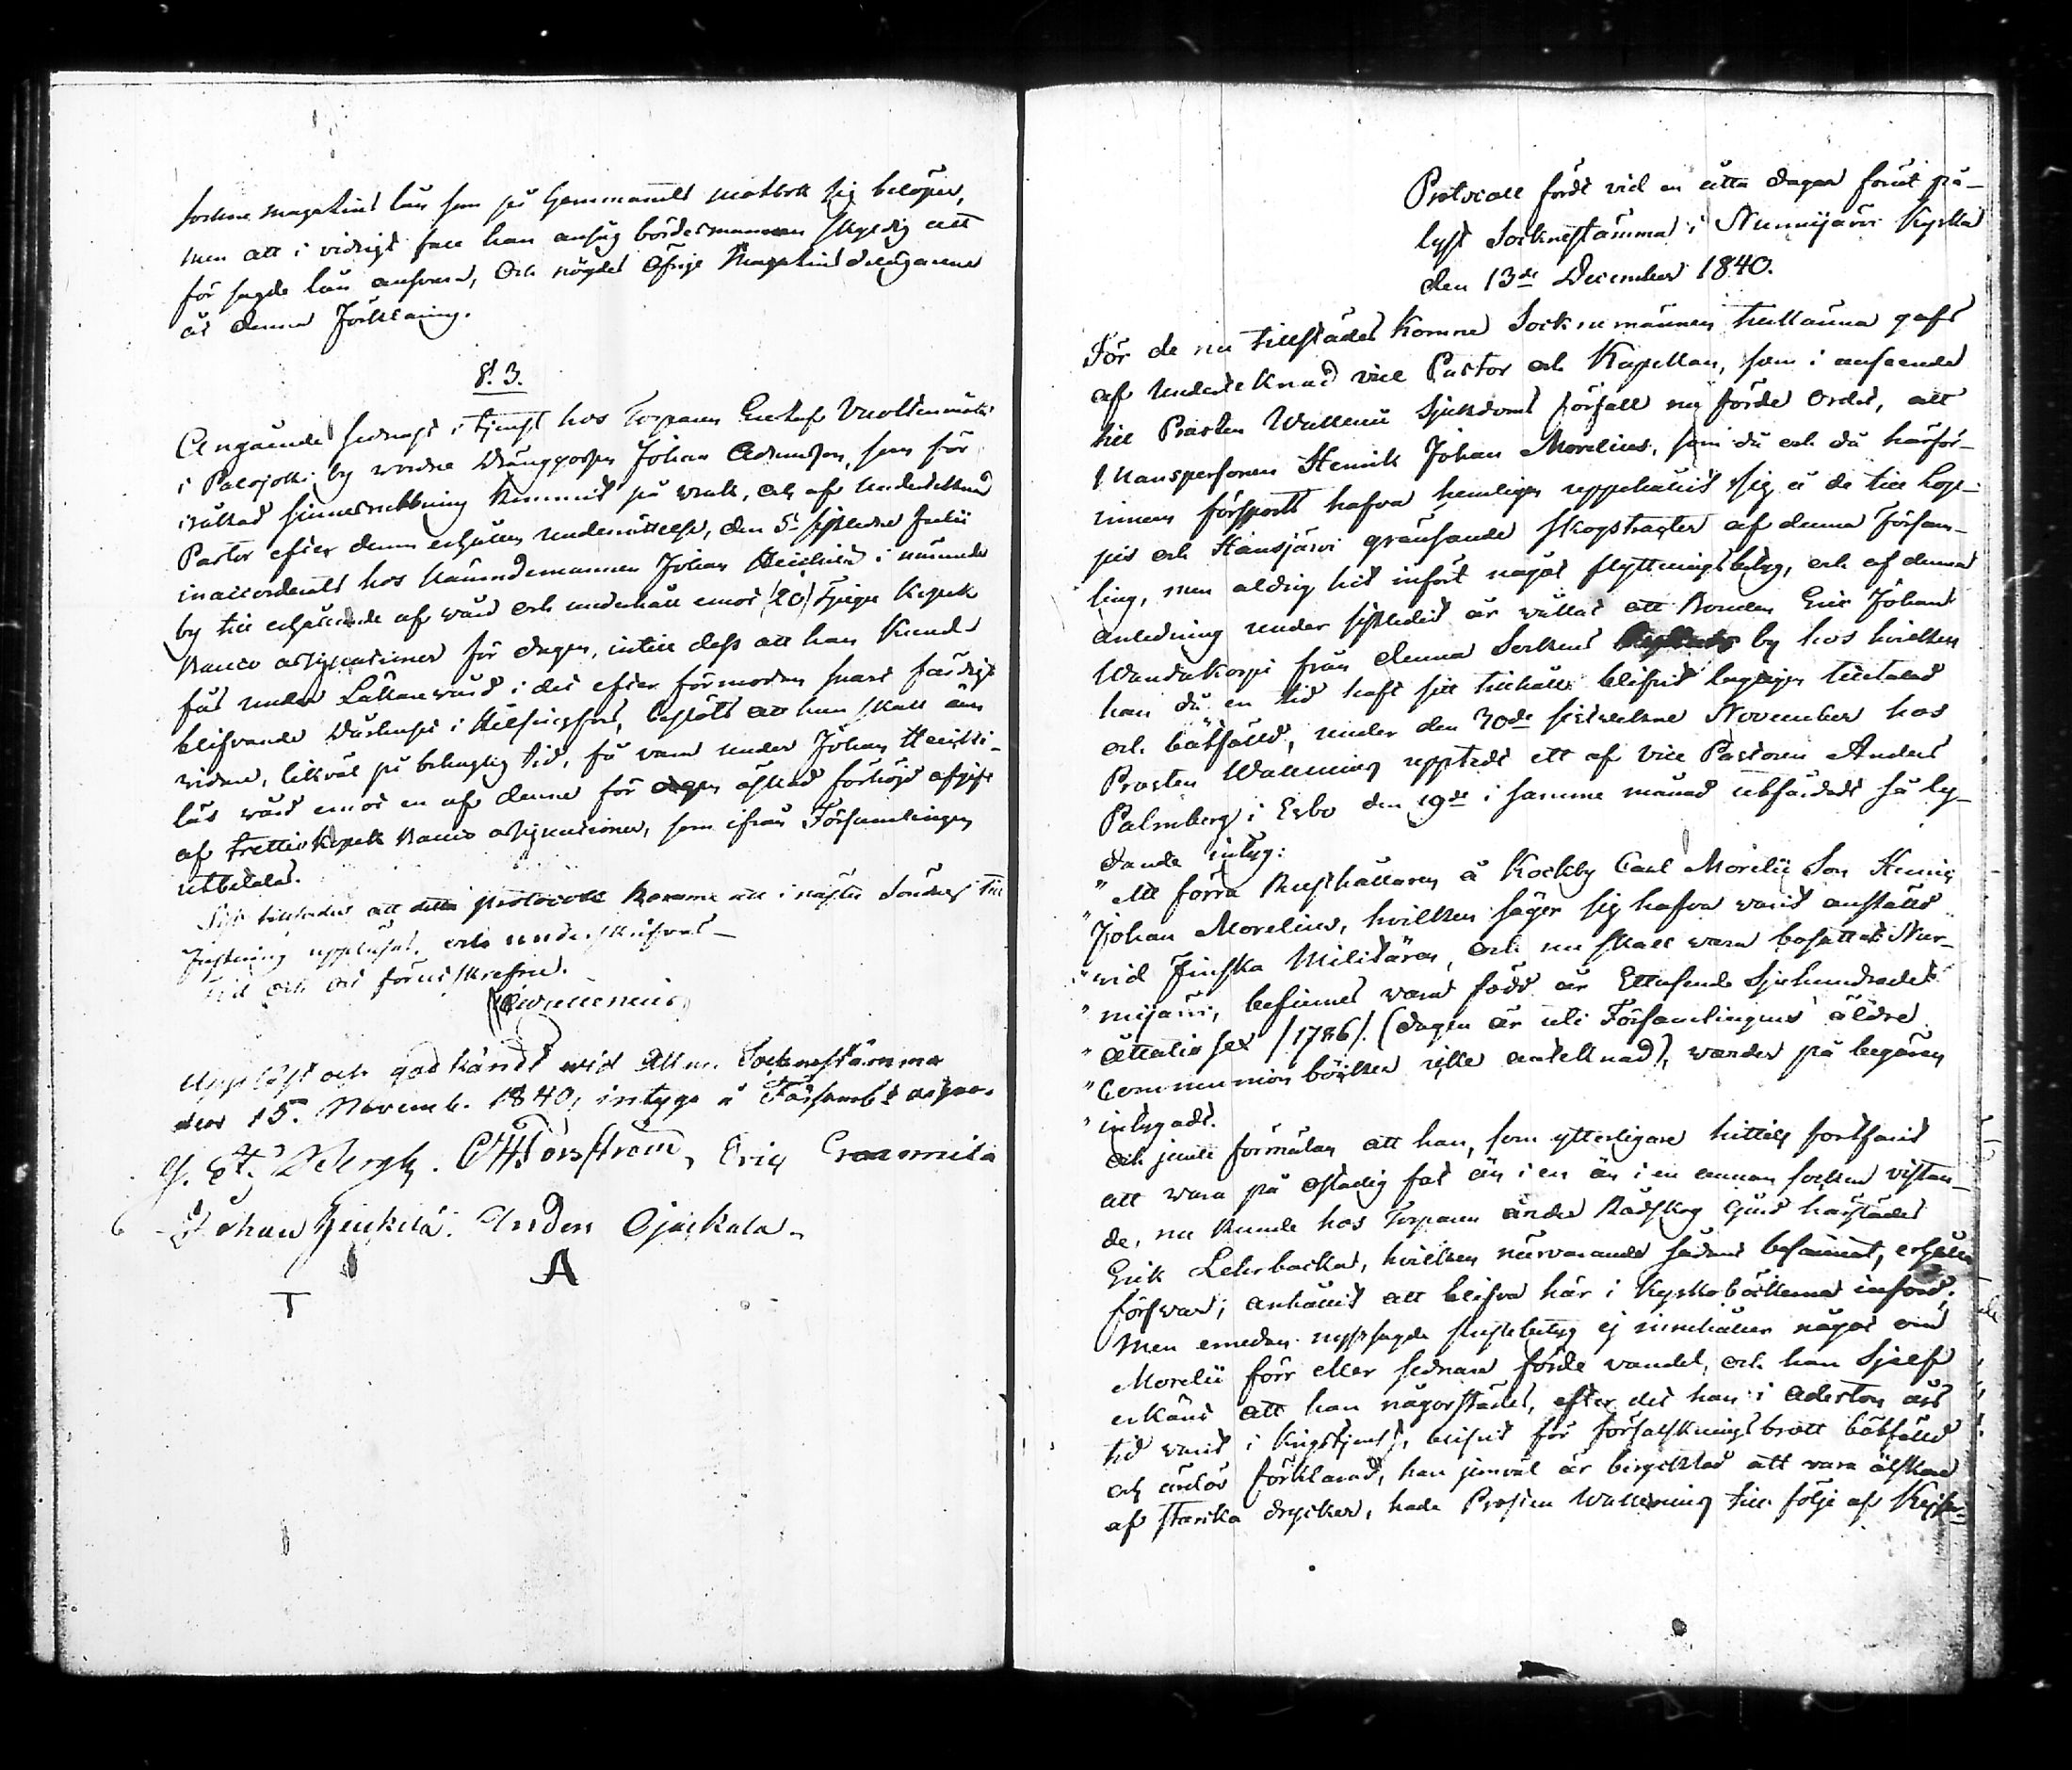 Sockne magasins lån som på hemmanets matbok sig belöper,
men att i vidrigt fall han ansåg bördesmannen skyldig att
för sagde lån ansvara, och nögdes öfrige Magasins delägarene
åt denna Förklaring.
§. 3.
Angående sednast i tjenst hos Torparen Gustaf
i Palojoki by varande Dränggossen Johan Adamsson, som för
iråkad sinnesrubbning kommit på vrak, och af Undertecknad
Pastor efter derom erhållen underrättelse, den 5 sistledne Julii
inaccorderats hos Nämndemannen Johan Heickilä i nämnde
by till erhållande af vård och underhåll emot /20/ Tjugu Kopek
Banco assignationer för dagen, intill dess att han kunde
fås under Läkarevård i det efter förmodan snart färdigt
blifvande Dårhuset i Helsingfors, beslöts att han skall än
vidare, likväl på behaglig tid, få vara under Johan Heicki-
läs vård emot en af denne för dagen äskad förhögd afgift
af trettio Kopek Banco assignationer, som ifrån Församlingen
utbetalas.
Sist tillsades att detta protocoll kommer att i nästa Söndag till
justering uppläsas, och underskrifvas
Tid och ort förutskrefne.
Wallenius
Uppläst och godkändt vid Allm. Socknestämma
den 15. Novemb. 1840, intyga å Församl:s vägnar
G. St. C H Forsström, Eric
Johan Heikilä. Anders Ojackala.
T A
Protocoll fördt vid en åtta dagar förut på-
lyst Socknestämma i Nurmijärvi Kyrka
den 13de December 1840.
För de nu tillstädes komne Sockne männen tillkänna gafs
af Undertecknad vice Pastor och Kapellan, som i anseende
till Prosten Wallenii Sjukdoms förfall nu förde ordet, att
Manspersonen Henrik Johan Morelius, som då och då härför-
innan försports hafva hemligen uppehållit sig å de till Lop-
pis och Hausjärvi gränsande skogstrakter af denna försam-
ling, men aldrig hit infört något flyttningsbetyg, och af denna
anledning under sistledit år vållat att Bonden Eric Johans
Wandakorpi från denna Sockens by hos hvilken
han då en tid haft sitt tillhåll blifvit lagligen tilltalad
och bötfälld, under den 30de sistvekne November hos
Prosten Wallenius uppted ett af Vice Pastoren Anders
Palmberg i Esbo den 19de i samme månad utfärdadt så ly-
dande intyg:
" Att förra Rusthållaren å Kockby Carl Morelii Son Henric
" Johan Morelius, hvilken säger sig hafva varit anställd
" vid Finska Militären, och nu skall vara bosatt i Nur-
" mijärvi, befinnes vara född år Ettusende Sjuhundradet
" Åttatio sex /1786/. (dagen är uti Församlingens äldre
" Communion böcker icke antecknad), varder på begäran
" intygadt.
och jemte förmälan att han, som ytterligare hittills fortfarit
att vara på ostadig fot än i en än i en annan socken vistan-
de, nu kunde hos Torparen under Rådskog Gård härstädes
Erik Lehrbacka, hvilken närvarande sådant besannat, erhålla
försvar; anhållit att blifva här i Kyrkoböckerna införd.
Men emedan nyssagde prestbetyg ej innehåller något om
Morelii förr eller sednare förde vandel, och han Sjelf
erkänt att han någorstädes, efter det han i Aderton års
tid varit i Krigstjenst, blifvit för förfalskningsbrott bötfälld
och ärelös förklarad, han jemväl är beryktad att vara älskare
af starka drycker, hade Prosten Wallenius till följe af Kejser-